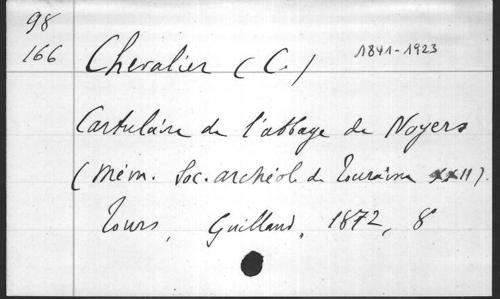 98
166
Chevalier (C.) 1841-1923
Cartulaire de l'abbaye de Noyers
(Mém. Soc. archéol. de Touraine XXII).
Tours, Guilland, 1872, 8